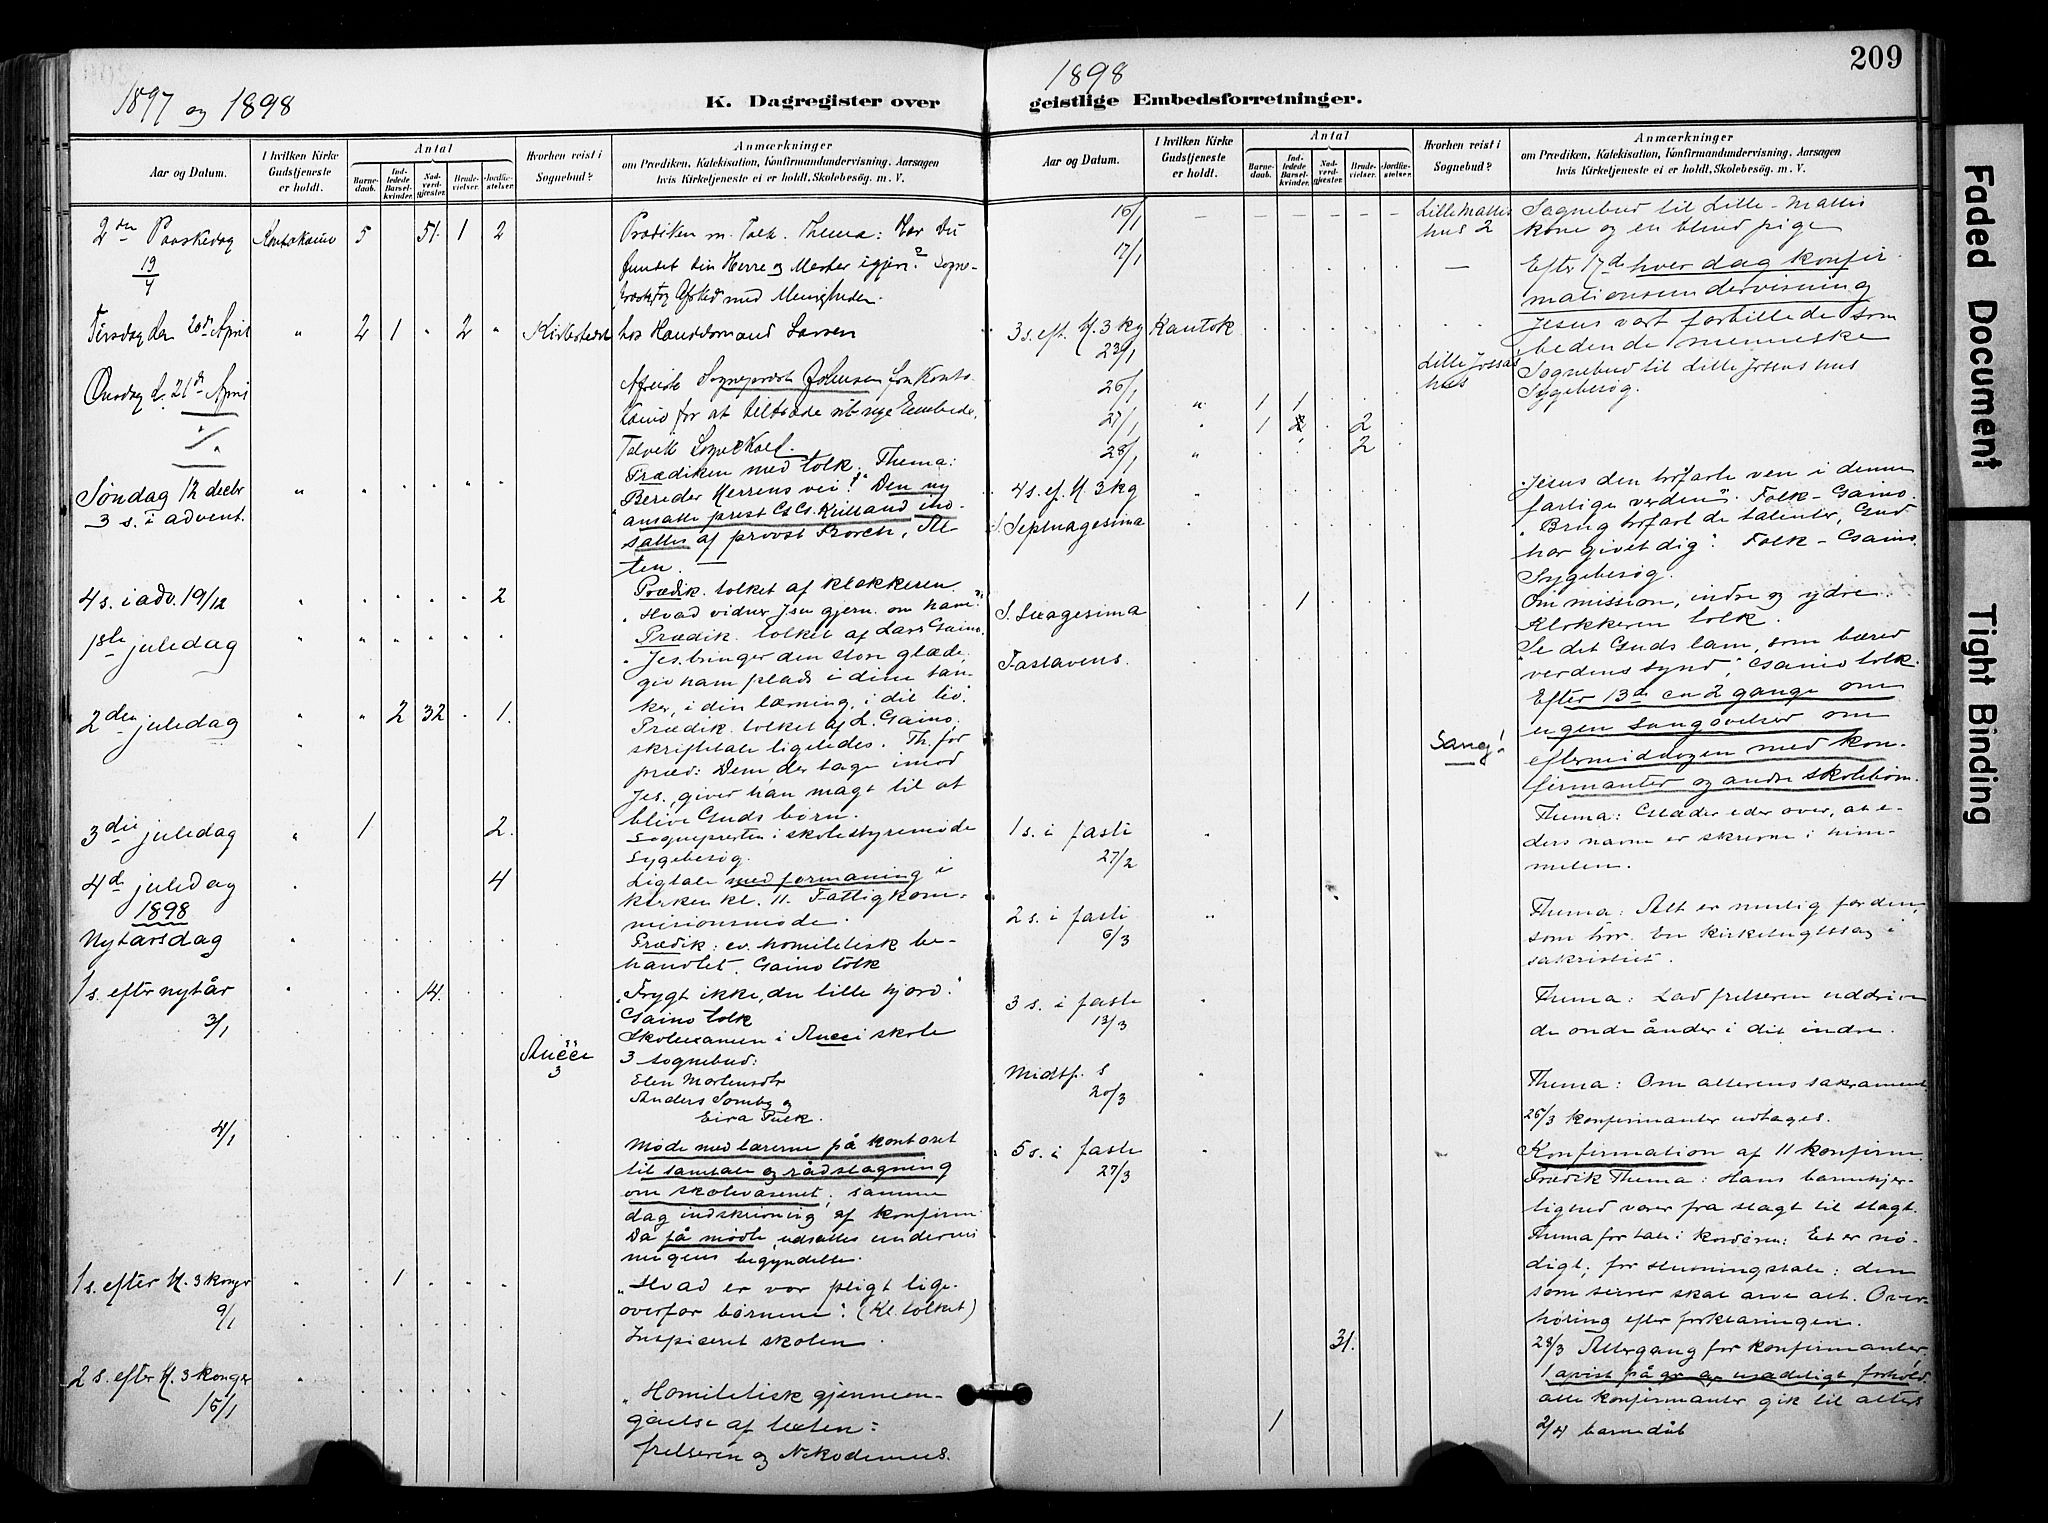 1897 og 1898
K. Dagregister over
Aar og Datum.
I hvilken Kirke Gudstjeneste er holdt.
Antal
Barnedaab.
Indledede Barselkvinder.
Nadverdgjæster.
Brudevielser.
Jordfæstelser.
Hvorhen reist i Sognebud?
Anmærkninger
om Prædiken, Katekisation, Konfirmandundervisning. Aarsagen
hvis Kirketjeneste ei er holdt, Skolebesøg. m. V.
2den Paaskedag Kautokeino 5 51 1 2 Prædiken m. Tolk. Thema: Har du
19/4 fundet din Herre og Mester igjen? Sogne-
Afsked med Menigheden.
Tirsdag den 20de April " 2 1 " 2 " Kirkestedet hos Handelsmand Larsen
Onsdag d. 21de April Afreiste Sognepræst Johnsen fra Kauto-
keino for at tiltræde sit nye Embede,
Talvik Sognekald.
Søndag 12 decbr " " " " " " Prædiken med tolk. Thema:
3 s. i advent. Bereder Herrens vei! Den ny
ansatte prest
sattes af provst Borch, Al-
ten.
4 s. i adv. 19/12 " 2 Prædik. tolket af klokkeren.
"Hvad vidner Jesu gjern. om ham?"
1ste juledag " " " Prædik. tolket af Lars Gaino.
"Jes. bringer den store glæde,
giv ham plads i dine tan-
ker, i din lærning, i dit liv."
2den juledag " " 2 32 1. Prædik. tolket af L. Gaino,
skriftetale ligeledes. Th. for
præd: Dem, der tage imod
Jes., giver han magt til at
blive Guds børn.
3die juledag " 1 2. Sognepresten i skolestyremøde
Sygebesøg.
4de juledag 4 Ligtale med formaning i
1898 kirken kl. 11. Fattigkom-
misionsmøde.
Nytårsdag Prædik: ev. homiletisk be-
handlet. Gaino tolk
1 s. efter nytår 14. "Frygt ikke, du lille hjord."
Gaino tolk
3/1 Skoleexamen i Aucci skole
Aucci 3 3 sognebud:
Elen Mortensdtr
Anders Somby og
Eira Pulk.
4/1 Møde med lærerne på kontoret
til samtale og rådslagning
om skolevæsenet; samme
dag indskrivnig af konfirm.
Da få mødte, udsattes undervis
ningens begyndelse.
1 s. efter H. 3 konger 1 "Hvad er vor pligt lige-
9/1 overfor børnene". (Kl. tolket)
Inspiceret skolen.
2 s. efter H. 3 konger "Homiletisk gjennem-
16/1 gåelse af texten:
frelseren og Nikodemus.
1898
209
geistlige Embedsforretninger.
Aar og Datum.
I hvilken Kirke Gudstjeneste er holdt.
Antal
Barnedaab.
Indledede Barselkvinder.
Nadverdgjæster.
Brudevielser.
Jordfæstelser.
Hvorhen reist i Sognebud?
Anmærkninger
om Prædiken, Katekisation, Konfirmandundervisning. Aarsagen
hvis Kirketjeneste ei er holdt, Skolebesøg. m. V.
15/1 – – – – – – Lille Mattis Sognebud til Lille-Mattis
hus 2 kone og en blind pige
17/1 – Efter 17de hver dag konfir-
mationsundervisning
3 s. eft. H. 3 kg Kautok Jesus vort forbillede som
23/1 bedende menneske
Lille Jossas hus Sognebud til Lille Jossas hus
26/1 " 1 1 Sygebesøg.
27/1 " 1 2 2
28/1 " 2
4 s. ef. H. 3 kg " "Jesus den trofaste ven i denne
farlige verden". Tolk – Gaino.
S. Septuagesima "Brug trofast de talenter, Gud
har givet dig". Tolk – Gaino.
Sygebesøg.
S. Sexagesima 1 Om mission, indre og ydre.
Klokkeren tolk.
Fastelavens. Se det Guds lam, som bærer
verdens synd", Gaino tolk.
Efter 13de en 2 gange om
ugen sangøvelser om
Sang! eftermiddagen med kon-
firmanter og andre skolebørn.
1 s. i faste " Thema: Glæder eder over, at e-
27/2 ders navne er skrevne i him-
melen.
2 s. i faste " Thema: Alt er mulig for den,
6/3 som tror. En kirketugtssag i
sakristiet.
3 s. i faste " Thema: Lad frelseren uddrive
13/3 de onde ånder i dit indre.
Midtf. s " Thema: Om alterens sakrament
20/3
26/3 konfirmanter udtages.
5 s. i faste " Konfirmation af 11 konfirm.
27/3 Prædik Thema: Hans barmhjer-
tighed varer fra slagt til slagt.
Thema for tale i kordøren: Et er nø-
digt; for slutningstale: den
som seirer skal arve alt. Over-
høring efter forklaringen.
31. 28/3 Altergang for konfirmanter,
1 avist på gr. a. usædeligt forhold.
alle konfirmanter gik til alters
1 2/4 barnedåb
Faded Document
Tight Binding